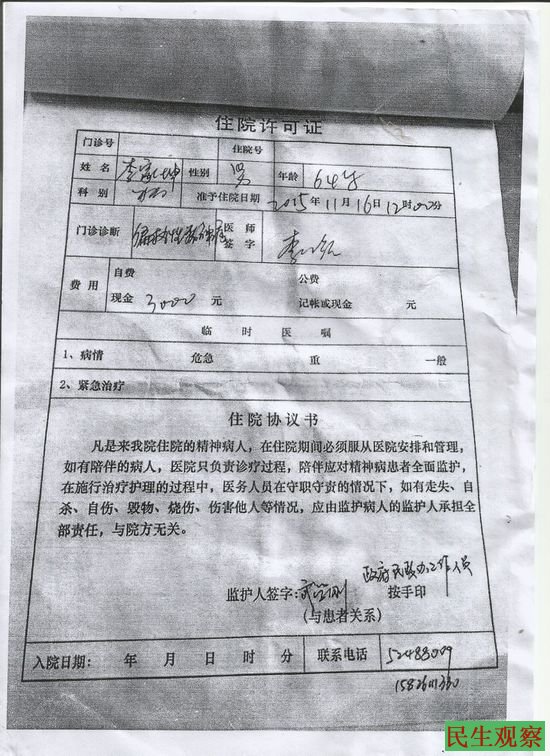 住院许可证
门诊号 住院号
姓名 李家坤 性别 男 年龄 64岁
科别 准予住院日期 2015年11月16日12时00分
门诊诊断 偏执性精神病 医师签字
费用 自费 现金 3000 元 公费 记帐或现金 元
临时医嘱
1、病情 危急 重 一般
2、紧急治疗
住院协议书
凡是来我院住院的精神病人，在住院期间必须服从医院安排和管理，
如有陪伴的病人，医院只负责诊疗过程，陪伴应对精神病患者全面监护，
在施行治疗护理的过程中，医务人员在守职守责的情况下，如有走失、自
杀、自伤、毁物、烧伤、伤害他人等情况，应由监护病人的监护人承担全
部责任，与院方无关。
政府民政办工作人员
监护人签字： 按手印
（与患者关系）
入院日期： 年 月 日 时 分 联系电话 52488009
民生观察